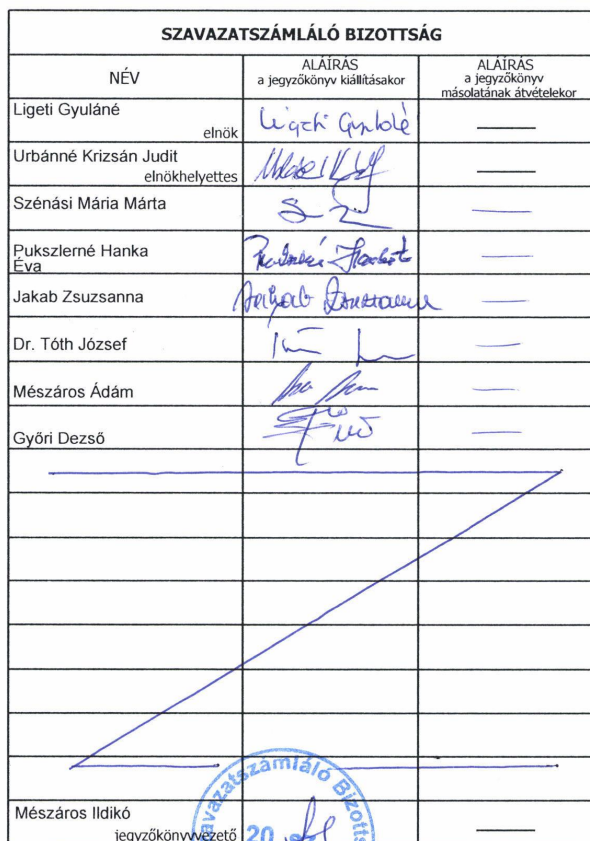 SZAVAZATSZÁMLÁLÓ BIZOTTSÁG
NÉV
ALÁÍRÁS
a jegyzőkönyv kiállításakor
ALÁÍRÁS
a jegyzőkönyv
másolatának átvételekor
Ligeti Gyuláné
elnök
Urbánné Krizsán Judit
elnökhelyettes
Szénási Mária Márta
Pukszlerné Hanka
Éva
Jakab Zsuzsanna
Jakab Zsuzsanna
Dr. Tóth József
Mészáros Ádám
Győri Dezső
Mészáros Ildikó
jegyzőkönyvvezető
20